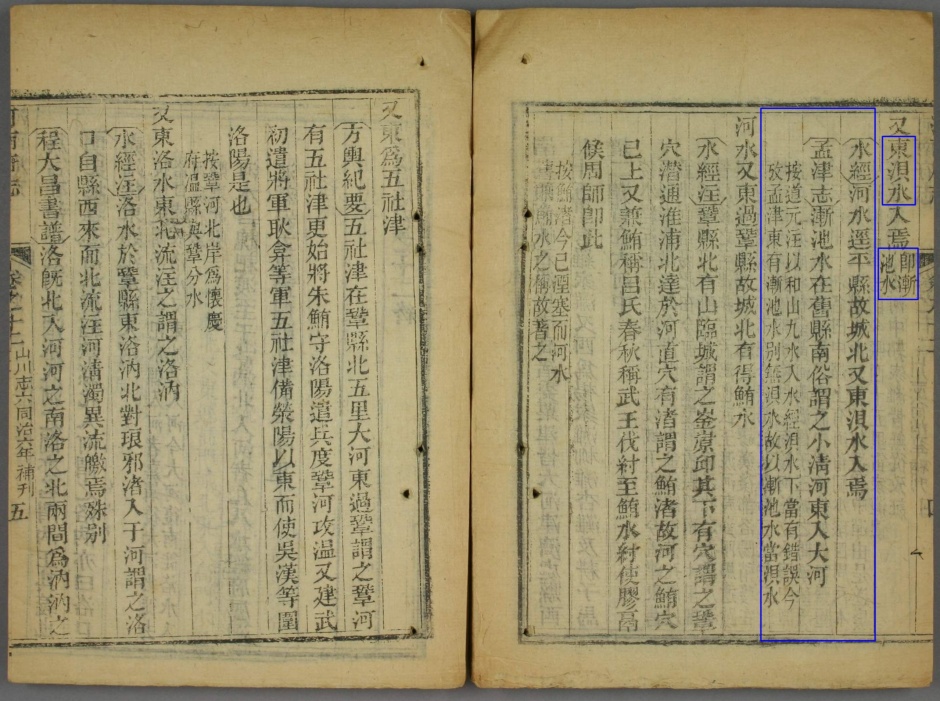 又東溴水入焉即漸池水
水經河水逕平縣故城北又東溴水入焉
孟津志漸池水在舊縣南俗謂之小淸河東入大河
按道元注以和山九水入水經溴水下當有錯誤今
攷孟津東有漸池水別無溴水故以漸池水當溴水
河水又東過鞏縣故城北有得鮪水
水經注鞏縣北有山臨城謂之崟原邱其下有穴謂之鞏
穴潛通淮浦北達於河直穴有渚謂之鮪渚故河之鮪穴
已上又兼鮪稱呂氏春秋稱武王伐紂至鮪水紂使膠鬲
候周師卽此
按鮪渚今已湮塞而河水
鮪水之稱故著之
又東爲五社津
方輿紀要五社津在鞏縣北五里大河東過鞏謂之鞏河
有五社津更始將朱鮪守洛陽遣兵度鞏河攻温又建武
初遣將軍耿弇等軍五社津備滎陽以東而使吳漢等圍
洛陽是也
按鞏河北岸爲懷慶
府温縣與鞏分水
又東洛水東北流注之謂之洛汭
水經注洛水於鞏縣東洛汭北對琅邪渚入于河謂之洛
口自縣西來而北流注河淸濁異流皦焉殊別
程大昌書譜洛旣北入河河之南洛之北兩間爲汭汭之
卷之十二 山川志六同治六年補刊 五